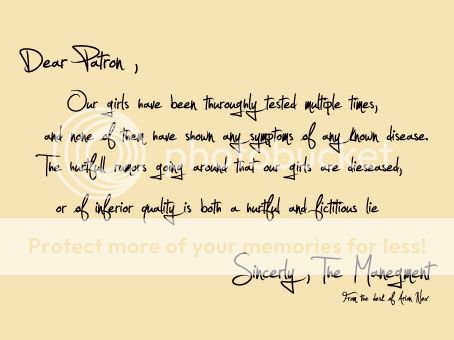 Dear Patron ,
Our girls have been thuroughly tested multiple times,
and none of them have shown any symptoms of any known disease.
The hurtfull rumors going around that our girls are dieseased,
or of inferior quality is both a hurtful and fictitious lie
photobucket
Protect more of your memories for less!
Sincerly , The Manegment
From the desk of